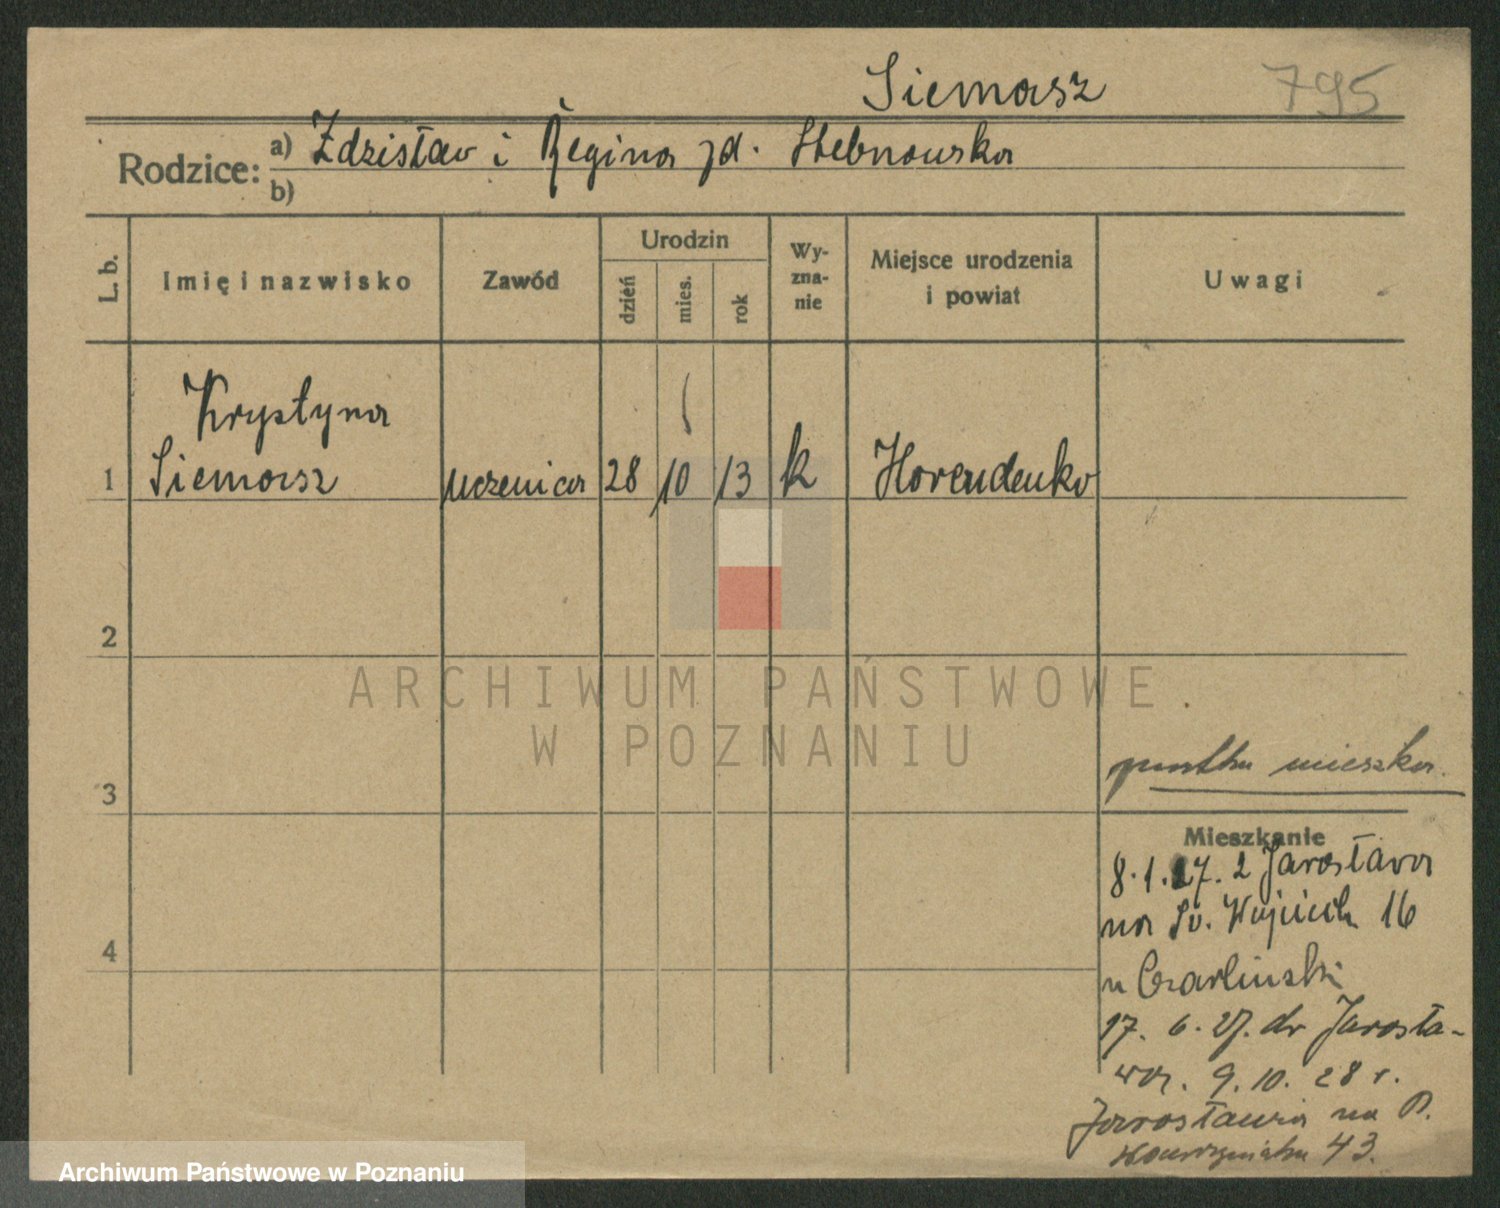 Siemasz 795
Rodzice: a) Zdzisław i Regina zd. Stebnowska
b)
L. b. Imię i nazwisko Zawód Urodzin dzień mies. rok Wy-zna-nie Miejsce urodzenia i powiat Uwagi
Krystyna
1 Siemasz uczenica 28 10 13 k Horendenko
2
ARCHIWUM PAŃSTWOWE
W POZNANIU
mieszka
3
Mieszkanie
8.1.27. z Jarosława
na Św. Wojciech 16
u Czarliński
4
17. 6. 27. do Jarosła-
wa. 9. 10. 28 r.
Jarosławia na P.
43.
Archiwum Państwowe w Poznaniu